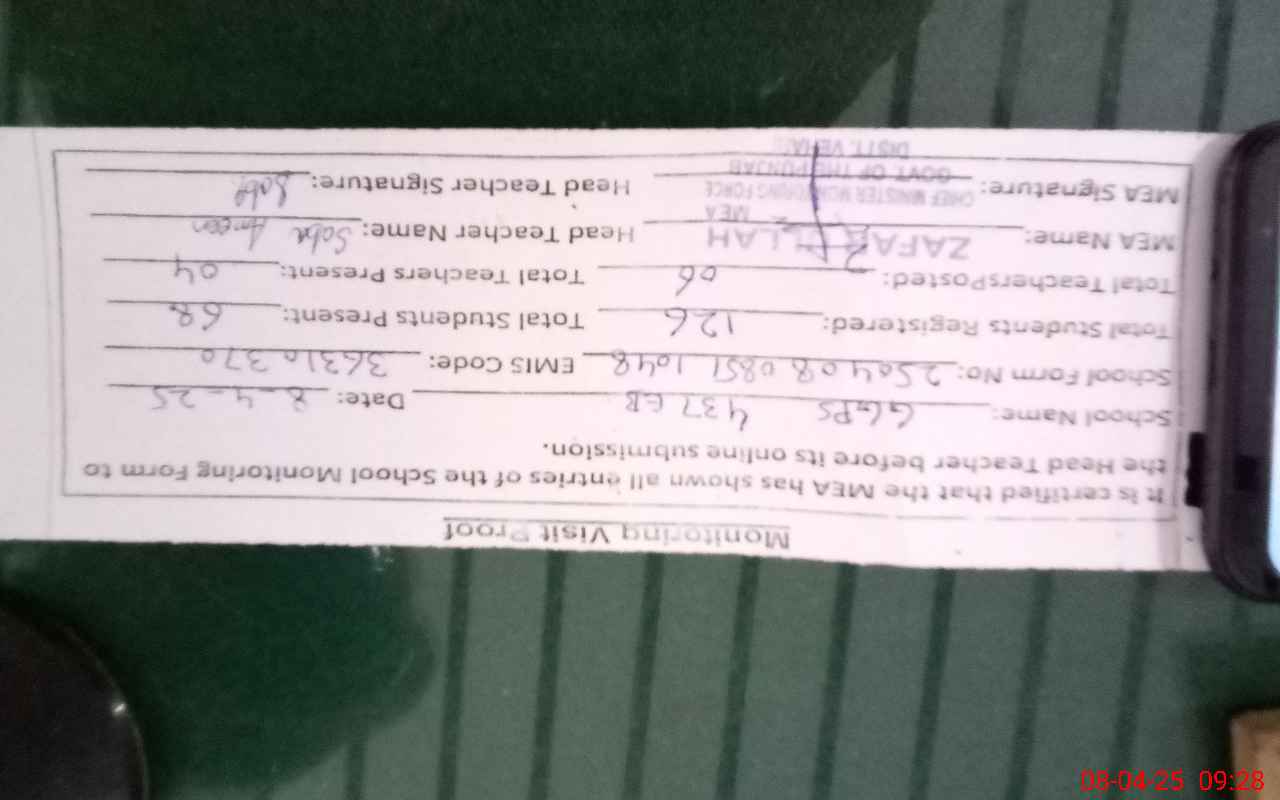 Monitoring Visit Proof
It is certified that the MEA has shown all entries of the School Monitoring Form to
the Head Teacher before its online submission.
School Name: GGPS 437 EB Date: 8-4-25
School Form No: 250408 0851 1048 EMIS Code: 36310370
Total Students Registered: 126 Total Students Present: 68
Total TeachersPosted: 06 Total Teachers Present: 04
MEA Name: ZAFAR ULLAH Head Teacher Name: Saba Ameen
MEA
CHIEF MINISTER MONITORING FORCE
MEA Signature: Head Teacher Signature: Saba
GOVT. OF THE PUNJAB
DISTT. VEHARI
08-04-25 09:28